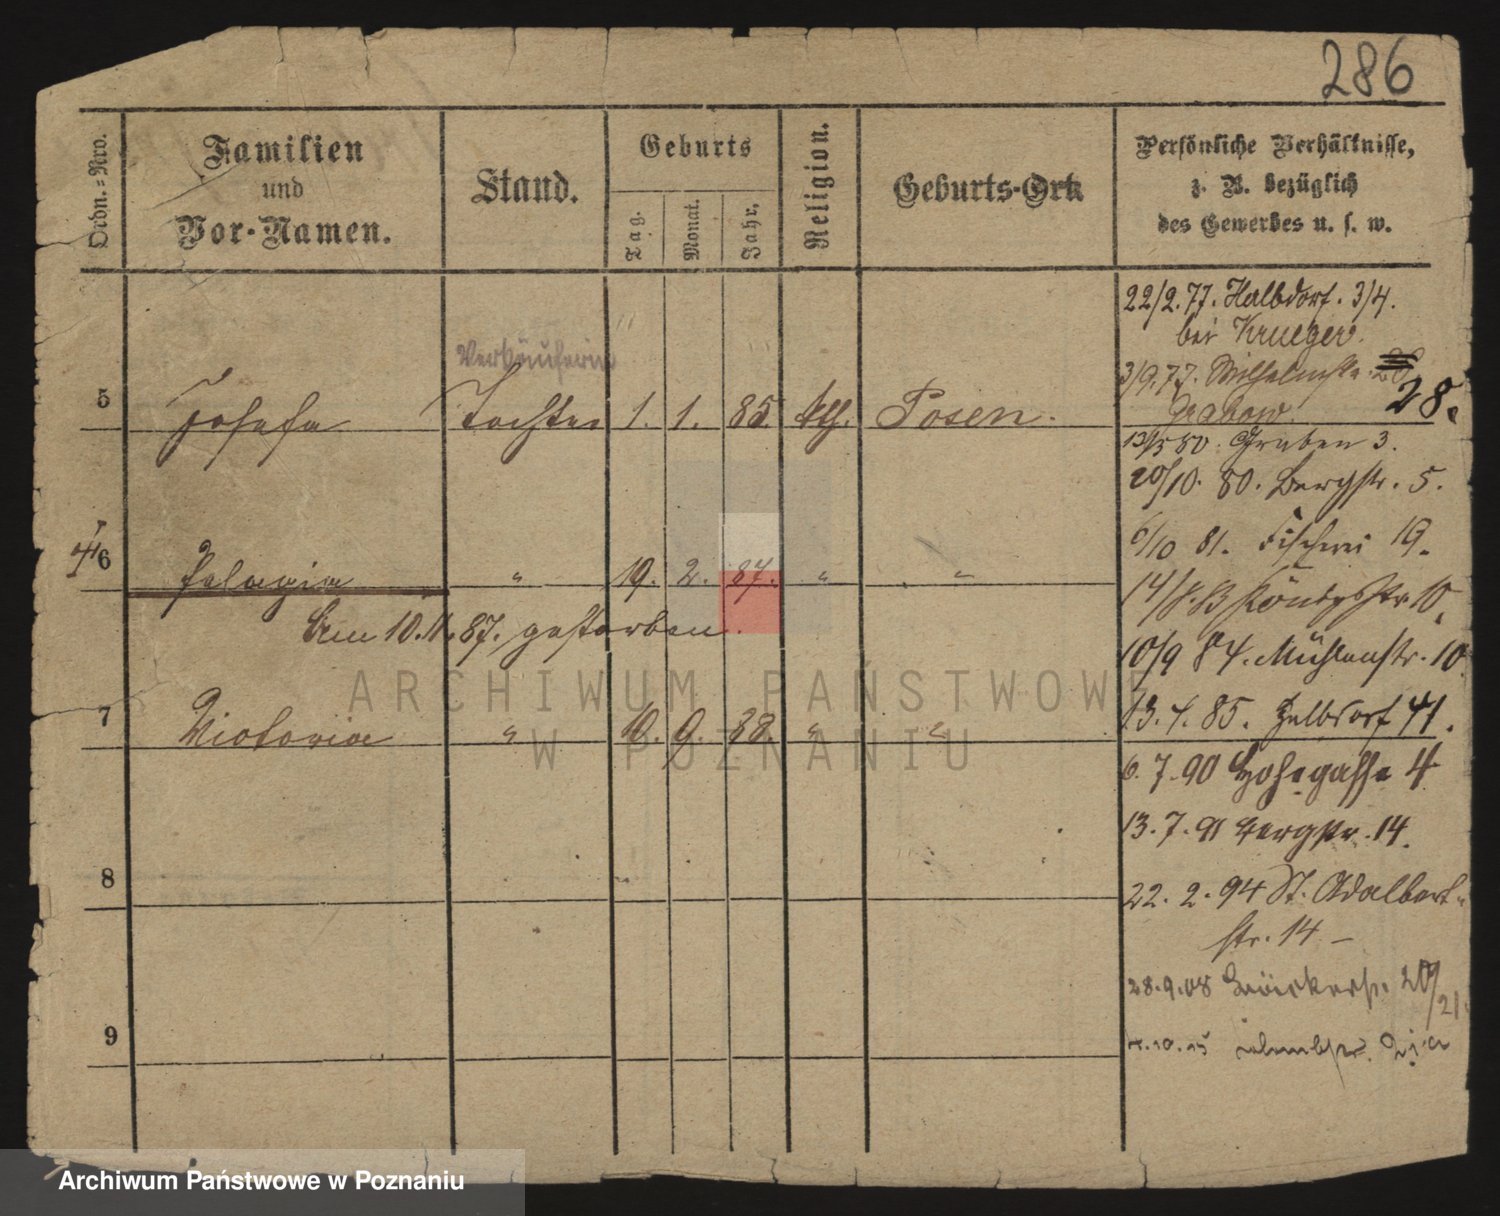 286
Ordn.=Nro.
Familien
und
Vor-Namen.
Stand.
Geburts
Tag.
Monat.
Jahr.
Religion.
Geburts-Ort
Persönliche Verhältnisse,
z. B. bezüglich
des Gewerbes u. s. w.
Verkäuferin
5 Josefa Tochter 1. 1. 85. kth. Posen.
6 Pelagia " 19. 2. 87. " "
Am 10.11.87. gestorben.
7 Victoria " 10. 9. 88. " "
8
9
22/2.77. Halbdorf. 3/4.
bei Krueger.
3/9.77. Wilhelmstr.
Grabow. 28.
13/5 80. Graben 3.
20/10. 80. Bergstr. 5.
6/10 81. Fischerei 19.
14/8.83 Königsstr. 10.
10/9 84. Mühlenstr. 10.
13.4.85. Halbdorf 41.
6.7.90 Hohegasse 4
13.7.91 Bergstr. 14.
22.2.94 St. Adalbert-
str. 14 –
28.9.08 20/21.
ARCHIWUM PAŃSTWOWE
W POZNANIU
Archiwum Państwowe w Poznaniu